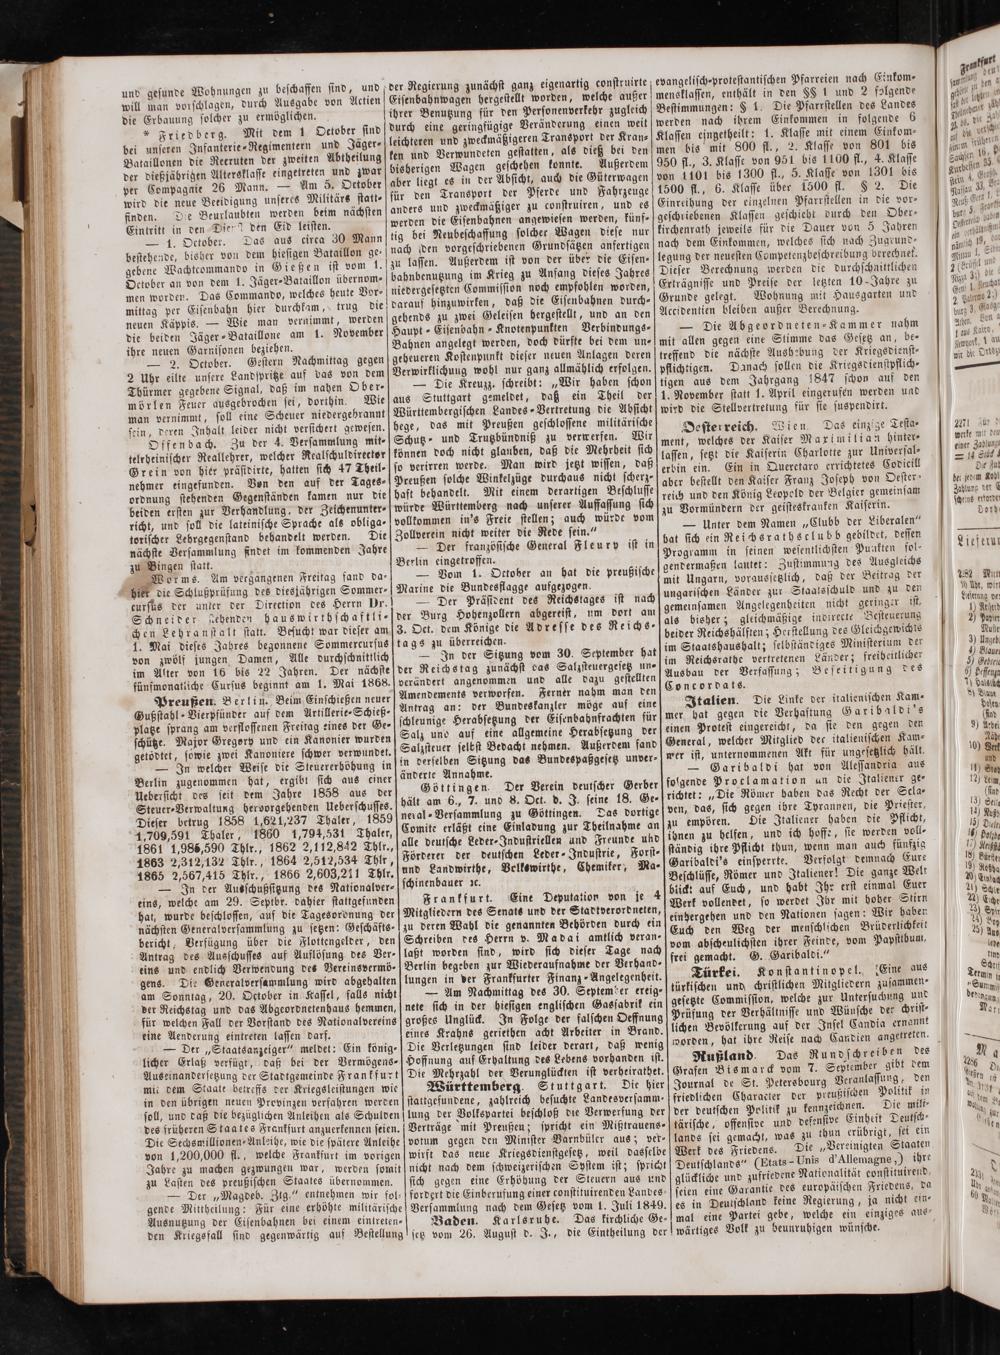 und gesunde Wohnungen zu beschaffen sind, und
will man vorschlagen, durch Ausgabe von Actien
die Erbauung solcher zu ermöglichen.
* Friedberg. Mit dem 1 October sind
bei unseren Infanterie-Regimentern und Jäger-
Bataillonen die Recruten der zweiten Abtheilung
der dießjährigen Altersklasse eingetreten und zwar
per Compagnie 26 Mann. — Am 5. October
wird die neue Beeidigung unseres Militärs statt-
finden. Die Beurlaubten werden beim nächsten
Eintritt in den Dienst den Eid leisten.
— 1. October. Das aus circa 30 Mann
bestehende, bisher von dem hiesigen Bataillon ge-
gebene Wachtcommando in Gießen ist vom 1.
October an von dem 1. Jäger-Bataillon übernom-
men worden. Das Commando, welches heute Vor-
mittag per Eisenbahn hier durchkam, trug die
neuen Käppis. — Wie man vernimmt, werden
die beiden Jäger-Bataillone am 1. November
ihre neuen Garnisonen beziehen.
— 2. October. Gestern Nachmittag gegen
2 Uhr eilte unsere Landspritze auf das von dem
Thürmer gegebene Signal, daß im nahen Ober-
mörlen Feuer ausgebrochen sei, dorthin. Wie
man vernimmt, soll eine Scheuer niedergebrannt
sein, deren Inhalt leider nicht versichert gewesen.
Offenbach. Zu der 4. Versammlung mit-
telrheinischer Reallehrer, welcher Realschuldirector
Grein von hier präsidirte, hatten sich 47 Theil-
nehmer eingefunden. Von den auf der Tages-
ordnung stehenden Gegenständen kamen nur die
beiden ersten zur Verhandlung, der Zeichenunter-
richt, und soll die lateinische Sprache als obliga-
torischer Lehrgegenstand behandelt werden. Die
nächste Versammlung findet im kommenden Jahre
zu Bingen statt.
Worms. Am vergangenen Freitag fand da-
hier die Schlußprüfung des diesjährigen Sommer-
cursus der unter der Direction des Herrn Dr.
Schneider stehenden hauswirthschaftli-
chen Lehranstalt statt. Besucht war dieser am
1. Mai dieses Jahres begonnene Sommercursus
von zwölf jungen Damen, Alle durchschnittlich
im Alter von 16 bis 22 Jahren. Der nächste
fünfmonatliche Cursus beginnt am 1. Mai 1868.
Preußen. Berlin. Beim Einschießen neuer
Gußstahl-Vierpfünder auf dem Artillerie-Schieß-
platze sprang am verflossenen Freitag eines der Ge-
schütze. Major Gregory und ein Kanonier wurden
getödtet, sowie zwei Kanoniere schwer verwundet.
— In welcher Weise die Steuererhöhung in
Berlin zugenommen hat, ergibt sich aus einer
Uebersicht des seit dem Jahre 1858 aus der
Steuer-Verwaltung hervorgehenden Ueberschusses.
Dieser betrug 1858 1,621,237 Thaler, 1859
1,709,591 Thaler, 1860 1,794,531 Thaler,
1861 1,986,590 Thlr., 1862 2,112,842 Thlr.,
1863 2,312,132 Thlr., 1864 2,512,534 Thlr,
1865 2,567,415 Thlr., 1866 2,603,211 Thlr.
— In der Ausschußsitzung des Nationalver-
eins, welche am 29. Septbr. dahier stattgefunden
hat, wurde beschlossen, auf die Tagesordnung der
nächsten Generalversammlung zu setzen: Geschäfts-
bericht, Verfügung über die Flottengelder, den
Antrag des Ausschusses auf Auflösung des Ver-
eins und endlich Verwendung des Vereinsvermö-
gens. Die Generalversammlung wird abgehalten
am Sonntag, 20. October in Kassel, falls nicht
der Reichstag und das Abgeordnetenhaus hemmen,
für welchen Fall der Vorstand des Nationalvereins
eine Aenderung eintreten lassen darf.
— Der „Staatsanzeiger“ meldet: Ein könig-
licher Erlaß verfügt, daß bei der Vermögens-
Auseinandersetzung der Stadtgemeinde Frankfurt
mit dem Staate betreffs der Kriegsleistungen wie
in den übrigen neuen Provinzen verfahren werden
soll, und daß die bezüglichen Anleihen als Schulden
des früheren Staates Frankfurt anzuerkennen seien.
Die Sechsmillionen-Anleihe, wie die spätere Anleihe
von 1,200,000 fl., welche Frankfurt im vorigen
Jahre zu machen gezwungen war, werden somit
zu Lasten des preußischen Staates übernommen.
— Der „Magdeb. Ztg.“ entnehmen wir fol-
gende Mittheilung: Für eine erhöhte militärische
Ausnutzung der Eisenbahnen bei einem eintreten-
den Kriegsfall sind gegenwärtig auf Bestellung
der Regierung zunächst ganz eigenartig construirte
Eisenbahnwagen hergestellt worden, welche außer
ihrer Benutzung für den Personenverkehr zugleich
durch eine geringfügige Veränderung einen weit
leichteren und zweckmäßigeren Transport der Kran-
ken und Verwundeten gestatten, als dieß bei den
bisherigen Wagen geschehen konnte. Außerdem
aber liegt es in der Absicht, auch die Güterwagen
für den Transport der Pferde und Fahrzeuge
anders und zweckmäßiger zu construiren, und es
werden die Eisenbahnen angewiesen werden, künf-
tig bei Neubeschaffung solcher Wagen diese nur
nach den vorgeschriebenen Grundsätzen anfertigen
zu lassen. Außerdem ist von der über die Eisen-
bahnbenutzung im Krieg zu Anfang dieses Jahres
niedergesetzten Commission noch empfohlen worden,
darauf hinzuwirken, daß die Eisenbahnen durch-
gehends zu zwei Geleisen hergestellt, und an den
Haupt-Eisenbahn-Knotenpunkten Verbindungs-
Bahnen angelegt werden, doch dürfte bei dem un-
geheueren Kostenpunkt dieser neuen Anlagen deren
Verwirklichung wohl nur ganz allmählich erfolgen.
— Die Kreuzz. schreibt: „Wir haben schon
aus Stuttgart gemeldet, daß ein Theil der
Württembergischen Landes-Vertretung die Absicht
hege, das mit Preußen geschlossene militärische
Schutz- und Trutzbündniß zu verwerfen. Wir
können doch nicht glauben, daß die Mehrheit sich
so verirren werde. Man wird jetzt wissen, daß
Preußen solche Winkelzüge durchaus nicht scherz-
haft behandelt. Mit einem derartigen Beschlusse
würde Württemberg nach unserer Auffassung sich
vollkommen in's Freie stellen; auch würde vom
Zollverein nicht weiter die Rede sein.“
— Der französische General Fleury ist in
Berlin eingetroffen.
— Vom 1. October an hat die preußische
Marine die Bundesflagge aufgezogen.
— Der Präsident des Reichstages ist nach
der Burg Hohenzollern abgereist, um dort am
3. Oct. dem Könige die Adresse des Reichs-
tags zu überreichen.
— In der Sitzung vom 30. September hat
der Reichstag zunächst das Salzsteuergesetz un-
verändert angenommen und alle dazu gestellten
Amendements verworfen. Ferner nahm man den
Antrag an: der Bundeskanzler möge auf eine
schleunige Herabsetzung der Eisenbahnfrachten für
Salz und auf eine allgemeine Herabsetzung der
Salzsteuer selbst Bedacht nehmen. Außerdem fand
in derselben Sitzung das Bundespaßgesetz unver-
änderte Annahme.
Göttingen. Der Verein deutscher Gerber
hält am 6., 7. und 8. Oct. d. J. seine 18. Ge-
neral-Versammlung zu Göttingen. Das dortige
Comite erläßt eine Einladung zur Theilnahme an
alle deutsche Leder-Industriellen und Freunde und
Förderer der deutschen Leder-Industrie, Forst-
und Landwirthe, Volkswirthe, Chemiker, Ma-
schinenbauer ꝛc.
Frankfurt. Eine Deputation von je 4
Mitgliedern des Senats und der Stadtverordneten,
zu deren Wahl die genannten Behörden durch ein
Schreiben des Herrn v. Madai amtlich veran-
laßt worden sind, wird sich dieser Tage nach
Berlin begeben zur Wiederaufnahme der Verhand-
lungen in der Frankfurter Finanz-Angelegenheit.
— Am Nachmittag des 30. September ereig-
nete sich in der hiesigen englischen Gasfabrik ein
großes Unglück. In Folge der falschen Oeffnung
eines Krahns geriethen acht Arbeiter in Brand.
Die Verletzungen sind leider derart, daß wenig
Hoffnung auf Erhaltung des Lebens vorhanden ist.
Die Mehrzahl der Verunglückten ist verheirathet.
Württemberg. Stuttgart. Die hier
stattgefundene, zahlreich besuchte Landesversamm-
lung der Volkspartei beschloß die Verwerfung der
Verträge mit Preußen; spricht ein Mißtrauens-
votum gegen den Minister Varnbüler aus; ver-
wirft das neue Kriegsdienstgesetz, weil dasselbe
nicht nach dem schweizerischen System ist; spricht
sich gegen eine Erhöhung der Steuern aus und
fordert die Einberufung einer constituirenden Landes-
Versammlung nach dem Gesetz vom 1. Juli 1849.
Baden. Karlsruhe. Das kirchliche Ge-
setz vom 26. August d. J., die Eintheilung der
evangelisch-protestantischen Pfarreien nach Einkom-
mensklassen, enthält in den §§ 1 und 2 folgende
Bestimmungen: § 1. Die Pfarrstellen des Landes
werden nach ihrem Einkommen in folgende 6
Klassen eingetheilt: 1. Klasse mit einem Einkom-
men bis mit 800 fl., 2. Klasse von 801 bis
950 fl., 3. Klasse von 951 bis 1100 fl., 4. Klasse
von 1101 bis 1300 fl., 5. Klasse von 1301 bis
1500 fl., 6. Klasse über 1500 fl. § 2. Die
Einreihung der einzelnen Pfarrstellen in die vor-
geschriebenen Klassen geschieht durch den Ober-
kirchenrath jeweils für die Dauer von 5 Jahren
nach dem Einkommen, welches sich nach Zugrund-
legung der neuesten Competenzbeschreibung berechnet.
Dieser Berechnung werden die durchschnittlichen
Erträgnisse und Preise der letzten 10 Jahre zu
Grunde gelegt. Wohnung mit Hausgarten und
Accidentien bleiben außer Berechnung.
— Die Abgeordneten-Kammer nahm
mit allen gegen eine Stimme das Gesetz an, be-
treffend die nächste Aushebung der Kriegsdienst-
pflichtigen. Danach sollen die Kriegsdienstpflich-
tigen aus dem Jahrgang 1847 schon auf den
1. November statt 1. April eingerufen werden und
wird die Stellvertretung für sie suspendirt.
Oesterreich. Wien. Das einzige Testa-
ment, welches der Kaiser Maximilian hinter-
lassen, setzt die Kaiserin Charlotte zur Universal-
erbin ein. Ein in Queretaro errichtetes Codicill
aber bestellt den Kaiser Franz Joseph von Oester-
reich und den König Leopold der Belgier gemeinsam
zu Vormündern der geisteskranken Kaiserin.
— Unter dem Namen „Clubb der Liberalen“
hat sich ein Reichsrathsclubb gebildet, dessen
Programm in seinen wesentlichsten Punkten fol-
gendermaßen lautet: Zustimmung des Ausgleichs
mit Ungarn, voraussetzlich, daß der Beitrag der
ungarischen Länder zur Staatsschuld und zu den
gemeinsamen Angelegenheiten nicht geringer ist
als bisher; gleichmäßige indirecte Besteuerung
beider Reichshälften; Herstellung des Gleichgewichts
im Staatshaushalt; selbständiges Ministerium der
im Reichsrathe vertretenen Länder; freiheitlicher
Ausbau der Verfassung; Beseitigung des
Concordats.
Italien. Die Linke der italienischen Kam-
mer hat gegen die Verhaftung Garibaldi's
einen Protest eingereicht, da sie den gegen den
General, welcher Mitglied der italienischen Kam-
mer ist, unternommenen Akt für ungesetzlich hält.
— Garibaldi hat von Alessandria aus
folgende Proclamation an die Italiener ge-
richtet: „Die Römer haben das Recht der Scla-
ven, das, sich gegen ihre Tyrannen, die Priester,
zu empören. Die Italiener haben die Pflicht,
ihnen zu helfen, und ich hoffe, sie werden voll-
ständig ihre Pflicht thun, wenn man auch fünfzig
Garibaldi's einsperrte. Verfolgt demnach Eure
Beschlüsse, Römer und Italiener! Die ganze Welt
blickt auf Euch, und habt Ihr erst einmal Euer
Werk vollendet, so werdet Ihr mit hoher Stirn
einhergehen und den Nationen sagen: Wir haben
Euch den Weg der menschlichen Brüderlichkeit
vom abscheulichsten ihrer Feinde, vom Papstthum,
frei gemacht. G. Garibaldi.“
Türkei. Konstantinopel. Eine aus
türkischen und christlichen Mitgliedern zusammen-
gesetzte Commission, welche zur Untersuchung und
Prüfung der Verhältnisse und Wünsche der christ-
lichen Bevölkerung auf der Insel Candia ernannt
worden, hat ihre Reise nach Candien angetreten.
Rußland. Das Rundschreiben des
Grafen Bismarck vom 7. September gibt dem
Journal de St. Petersbourg Veranlassung, den
friedlichen Character der preußischen Politik in
der deutschen Politik zu kennzeichnen. Die mili-
tärische, offensive und defensive Einheit Deutsch-
lands sei gemacht, was zu thun erübrigt, sei ein
Werk des Friedens. Die „Vereinigten Staaten
Deutschlands“ (Etats-Unis d'Allemagne,) ihre
glückliche und zufriedene Nationalität constituirend,
seien eine Garantie des europäischen Friedens, da
es in Deutschland keine Regierung, ja nicht ein-
mal eine Partei gebe, welche ein einziges aus-
wärtiges Volk zu beunruhigen wünsche.